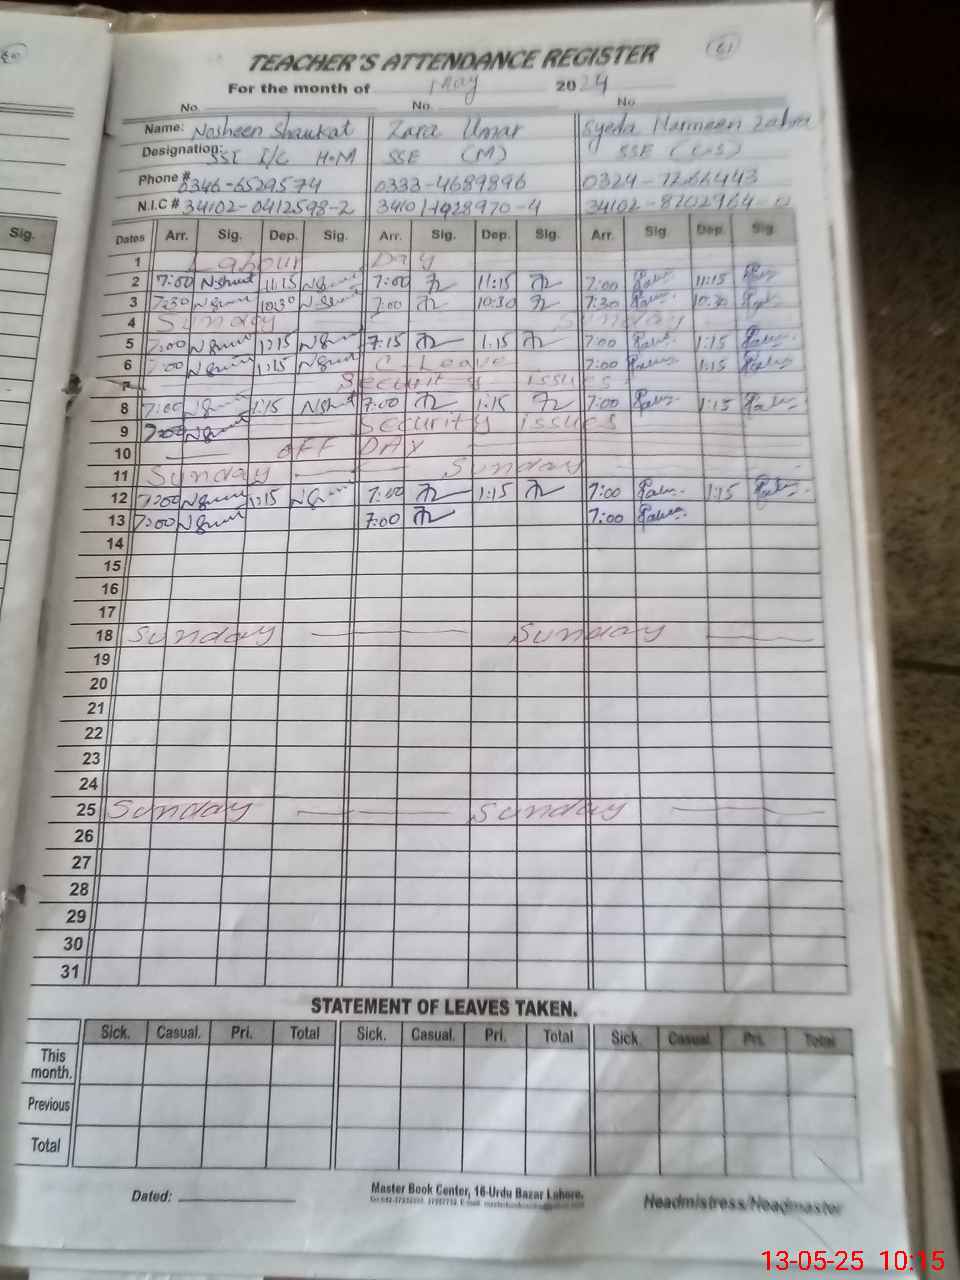 61
TEACHER'S ATTENDANCE REGISTER
For the month of May 2024
No. No. No
Name: Nosheen Shaukat Zara Umar Syeda Narmeen Zahra
Designation: SST I/C H.M SSE (M) SSE (C.S)
Phone # 0346-6529574 0333-4689896 0324-7266443
N.I.C # 34102-0412598-2 34101-1928970-4 34102-8202964-
Sig. Dates Arr. Sig. Dep. Sig. Arr. Sig. Dep. Sig. Arr. Sig. Dep. Sig.
1 Labour Day
2 7:00 11:15 7:00 11:15 7:00 11:15
3 7:30 10:30 7:00 10:30 7:30 10:30
4 Sunday Sunday
5 7:00 1:15 7:15 1:15 7:00 1:15
6 7:00 1:15 C. Leave 7:00 1:15
7 Security issues
8 7:00 1:15 7:00 1:15 7:00 1:15
9 7:00 Security issues
10 OFF DAY
11 Sunday Sunday
12 7:00 1:15 7:00 1:15 7:00 1:15
13 7:00 7:00 7:00
14
15
16
17
18 Sunday Sunday
19
20
21
22
23
24
25 Sunday Sunday
26
27
28
29
30
31
STATEMENT OF LEAVES TAKEN.
Sick. Casual. Pri. Total Sick. Casual. Pri. Total Sick. Casual Pri. Total
This month.
Previous
Total
Dated: Master Book Center, 16-Urdu Bazar Lahore. Headmistress/Headmaster
13-05-25 10:15